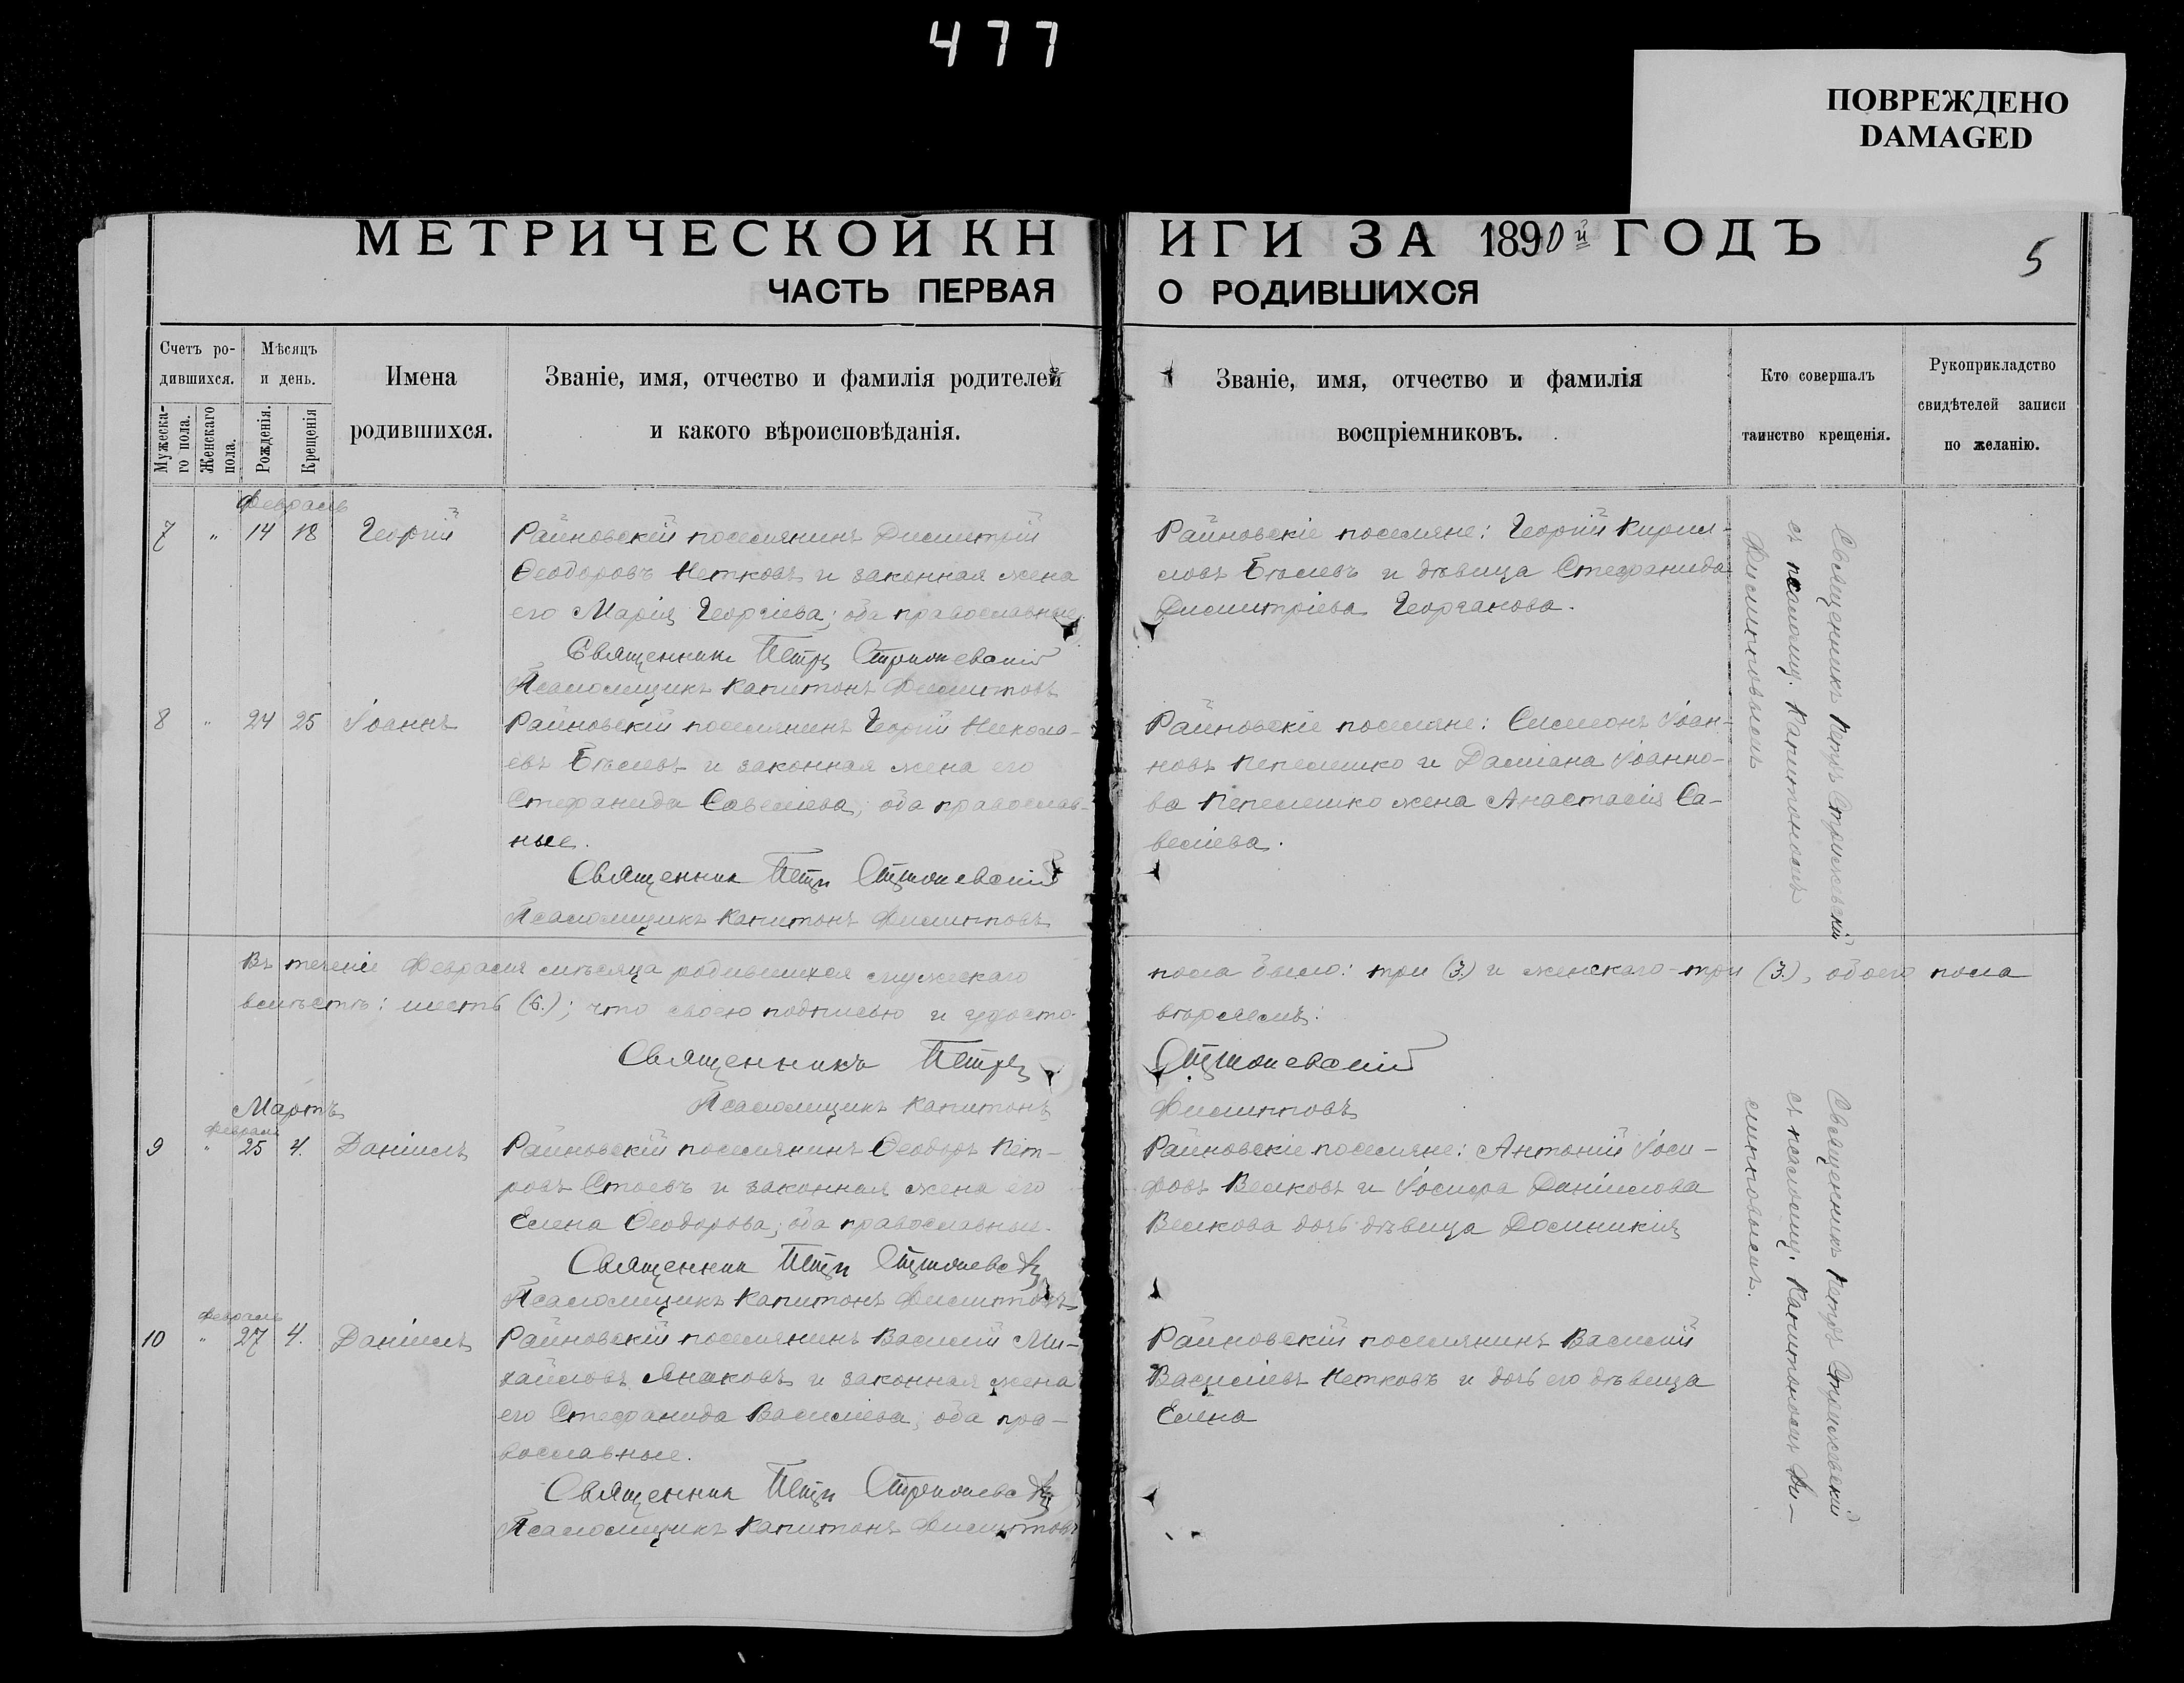 477
ПОВРЕЖДЕНО
DAMAGED
МЕТРИЧЕСКОЙ КНИГИ ЗА 1890й ГОДЪ
5
ЧАСТЬ ПЕРВАЯ О РОДИВШИХСЯ
Счетъ ро-
дившихся.
Мужеска-
го пола.
Женскаго
пола.
Мѣсяцъ
и день.
Рожденія.
Крещенія
Имена
родившихся.
Званіе, имя, отчество и фамилія родителей
и какого вѣроисповѣданія.
Званіе, имя, отчество и фамилія
воспріемниковъ.
Кто совершалъ
таинство крещенія.
Рукоприкладство
свидѣтелей записи
по желанію.
Февраль
7 " 14 18 Георгій
Райновскій поселянинъ Димитрій
Ѳеодоровъ Нетковъ и законная жена
его Марія Георгіева; оба православные
Священник Петръ Стрижевскій
Псаломщикъ Капитонъ Филипповъ
Райновскіе поселяне: Георгій Кирил-
ловъ Бѣлевъ и дѣвица Стефанида
Димитріева Герганова.
8 " 24 25 Іоаннъ
Райновскій поселянинъ Георгій Никола-
евъ Бѣлевъ и законная жена его
Стефанида Савеліева; оба православ-
ные.
Священник Петръ Стрижевскій
Псаломщикъ Капитонъ Филипповъ
Райновскіе поселяне: Симеонъ Іоан-
новъ Пепелешко и Даміана Іоанно-
ва Пепелешко жена Анастасія Са-
веліева.
Священникъ Петръ Стрижевскій
съ псаломщ. Капитономъ
Филипповымъ
Въ теченіе Февраля мѣсяца родившихся мужескаго пола было: три (3.) и женскаго-три (3.), обоего пола
вмѣстѣ: шесть (6.); что своею подписью и удосто-
вѣряемъ:
Священникъ Петръ Стрижевскій
Псаломщикъ Капитонъ Филипповъ
Мартъ
Февраля
9 " 25 4. Даніилъ
Райновскій поселянинъ Ѳеодоръ Пет-
ровъ Стоевъ и законная жена его
Елена Ѳеодорова; оба православные.
Священник Петръ
Псаломщикъ Капитонъ Филипповъ
Райновскіе поселяне: Антоній Іоси-
фовъ Велковъ и Іосифа Даніилова
Велкова дочь дѣвица Доминикія
Февраль
10 " 27 4. Даніилъ
Райновскій поселянинъ Василій Ми-
хайловъ Янаковъ и законная жена
его Стефанида Василіева; оба пра-
вославные.
Священник Петръ
Псаломщикъ Капитонъ Филипповъ
Райновскій поселянинъ Василій
Василіевъ Нетковъ и дочь его дѣвица
Елена
Священникъ Петръ Стрижевскій
съ псаломщ. Капитономъ Фи-
липповымъ.